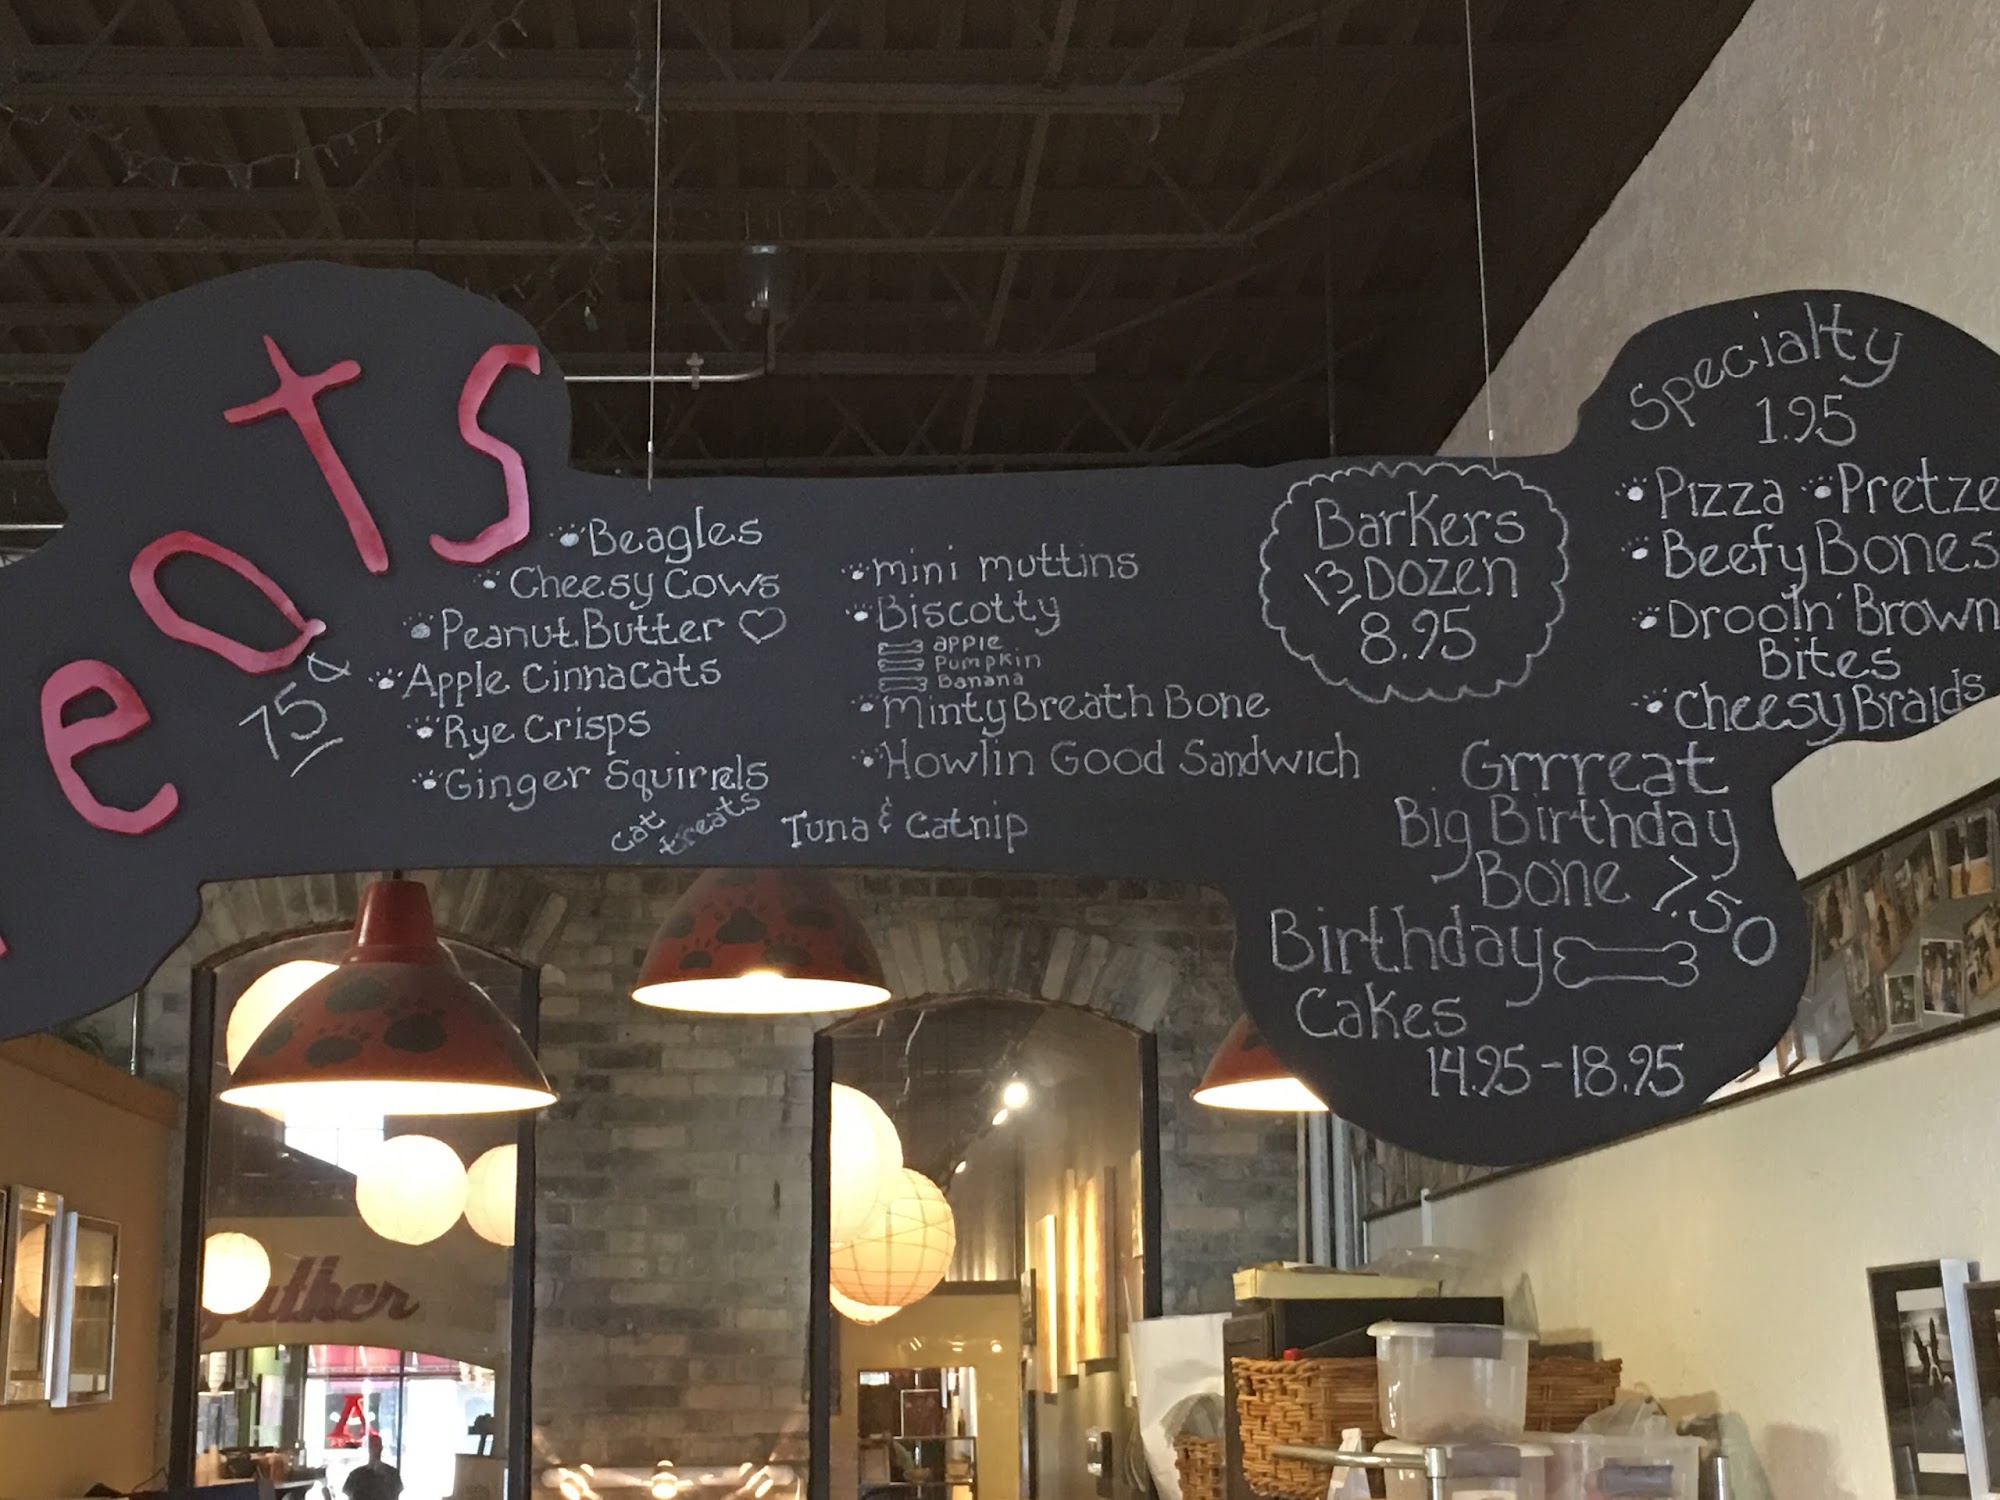 eats
75¢
Beagles
Cheesy Cows
Peanut Butter
Apple Cinnacats
Rye Crisps
Ginger Squirrels
mini muttins
Biscotty
apple
Pumpkin
Banana
Minty Breath Bone
Howlin Good Sandwich
cat
treats
Tuna & Catnip
Barkers
13 Dozen
8.95
Specialty
1.95
Pizza Pretze
Beefy Bones
Drooln' Brown
Bites
Cheesy Braids
Grrrreat
Big Birthday
Bone 7.50
Birthday
Cakes
14.95-18.95
uther
A